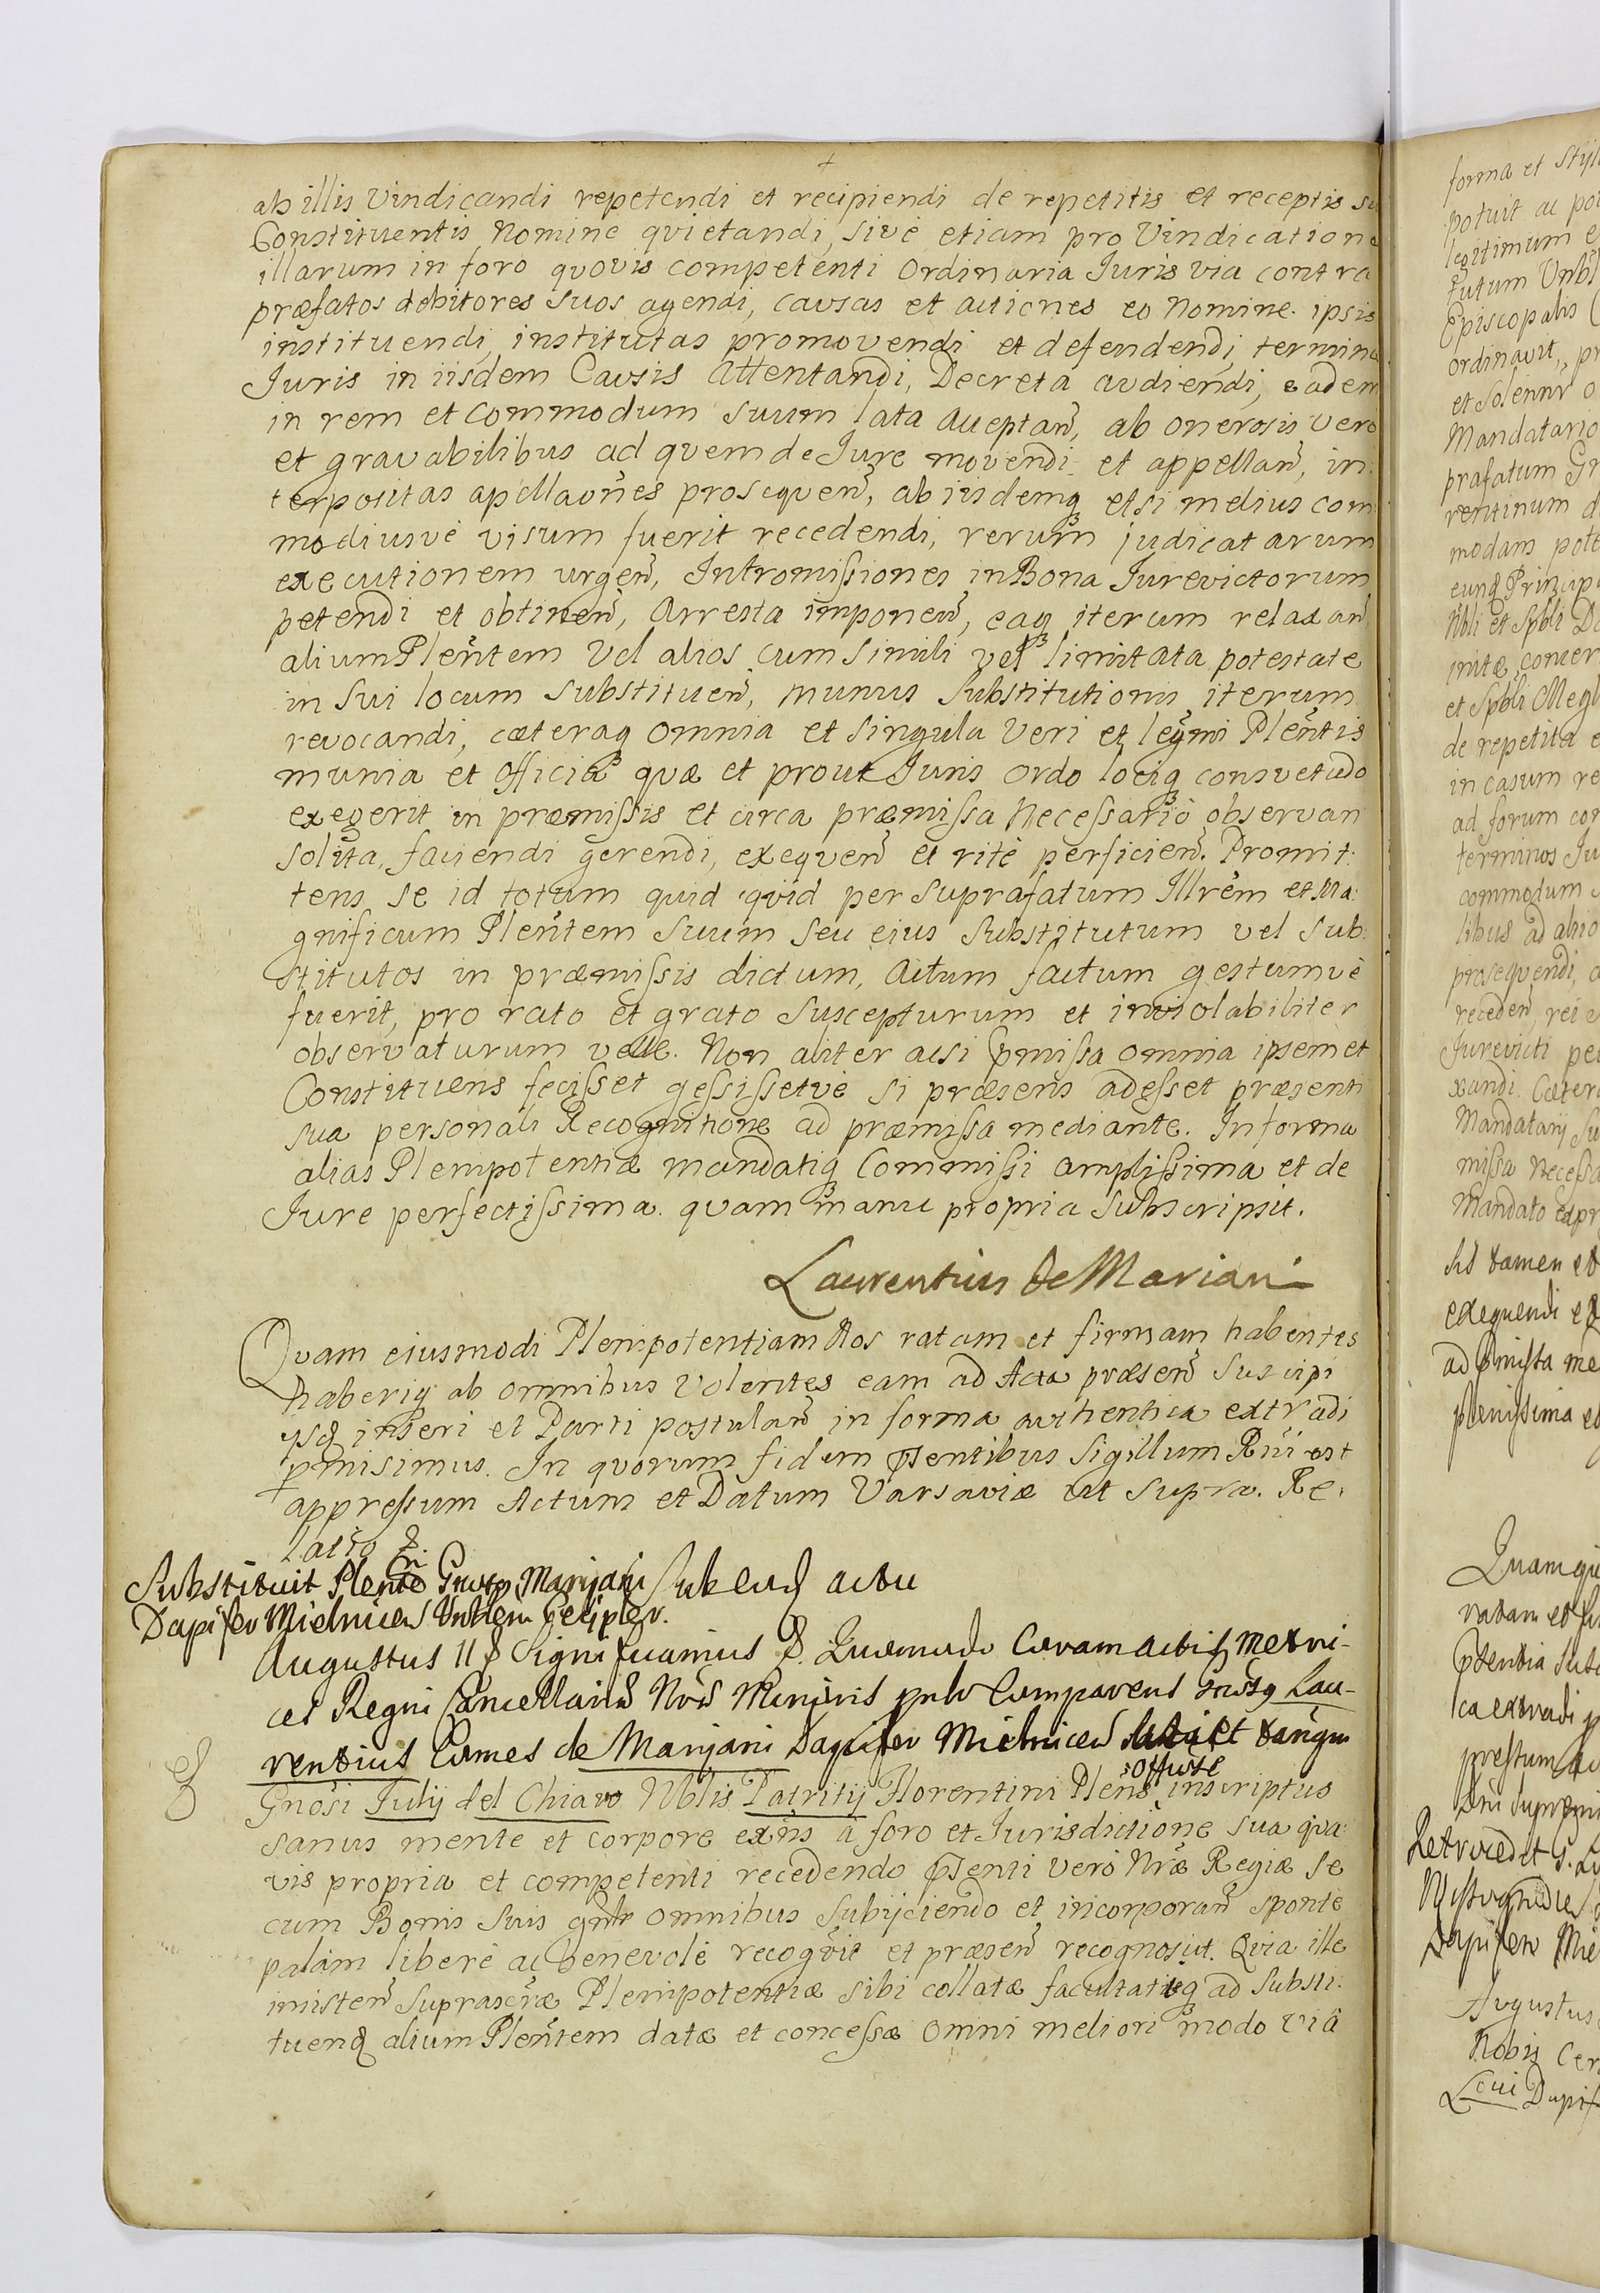 ab illis Vindicandi repetendi et recipiendi de repetitis et receptis su
Constituentis Nomine quietandi, sivè etiam pro Vindicatione
illarum in foro quovis competenti Ordinaria Iuris via contra
præfatos debitores suos agendi, causas et actiones eo Nomine ipsis
instituendi, institutas promovendi et defendendi, termina
Juris in iisdem Causis Attentandi, Decreta audiendi, eadem
in rem et commodum suum lata acceptañ, ab onerosis vero
et gravabilibus ad quem de Jure movendi et appellañ, in
terpositas apellaõnes prosequeñ, ab iisdemq etsi melius com
modiusvè visum fuerit recedendi, rerum judicatarum
executionem urgeñ, Intromissiones in Bona Jurevictorum
petendi et obtineñ, Arresta imponeñ, eaq iterum relaxañ
alium Pleñtem Vel alios cum simili vel limitata potestate
in sui locum substitueñ, munus substitutionis iterum
revocandi, cæteraq omnia et singula Veri et legmi Pleñtis
munia et Officia quæ et prout Juris ordo lociq consvetudo
exegerit in præmissis et circa præmissa Necessario observan
solita, faciendi gerendi, exequeñ et ritè perficieñ. Promit:
tens se id totum quid quid per suprafatum Illrem et Ma:
gnificum Pleñtem suum seu eius Substitutum vel sub:
stitutos in præmissis dictum, Actum factum gestumvè
fuerit, pro rato et grato suscepturum et inviolabiliter
observaturum velle. Non aliter acsi pmissa omnia ipsemet
Constituens fecisset gessissetvè si præsens adesset præsenti
sua personali Recognitione ad præmissa mediante. In forma
alias Plenipotentiæ mandatiq Commissi amplissima et de
Jure perfectissima. quam manu propria subscripsit.
Laurentius de Mariani
Quam eiusmodi Plenipotentiam Nos ratam et firmam habentes
haberiq ab omnibus Volentes eam ad Acta præseñ suscipi
ysq inseri et Parti postulañ in forma authentica extradi
pmisimus. In quorum fidem pntibus Sigillum Rni est
appressum Actum et Datum Varsaviæ ut supra. Re:
latio &.
Substituit Plente Gnoso Marijani sub eod actu
Dapifer Mielnicen
Augustus II & Significamus &. Quomodo Coram actis Metri-
ces Regni Cancellariæ Nræ Minoris Comparens Gnosq Lau-
rentius Comes de Marijani Dapifer Mielnicen et tanqm
Gnosi Julij del Chiaro Nblis Patritij Florentini Plens inscriptus
sanus mente et corpore exñs â foro et Jurisdictione sua qua:
vis propria et competenti recedendo pnti vero Nræ Regiæ se
cum Bonis suis gnlr omnibus subijciendo et incorporañ sponte
palam liberè ac benevolè recogvit et præseñ recognoscit. Qvia ille
inisteñ suprascræ Plenipotentiæ sibi collatæ facultatisq ad substi:
tuenq alium Pleñtem datæ et concessæ omni meliori modo viâ
forma et
potuit ac
legitimum
tutum
Episcopalis
ordinavit,
et solenni
Mandatario
præfatum
rentinum
modam
eunq
et
de repetita
in casum
ad forum
terminos
commodum
libus ad
prosequendi,
Jurevicti
xandi.
Mandatarij
missa
Mandato
tamen
exequendi
ad pmissa
plenissima
ratam
Dapifer
Augustus
Nobis